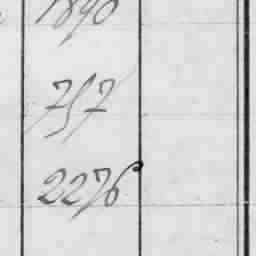 1890
757
2276